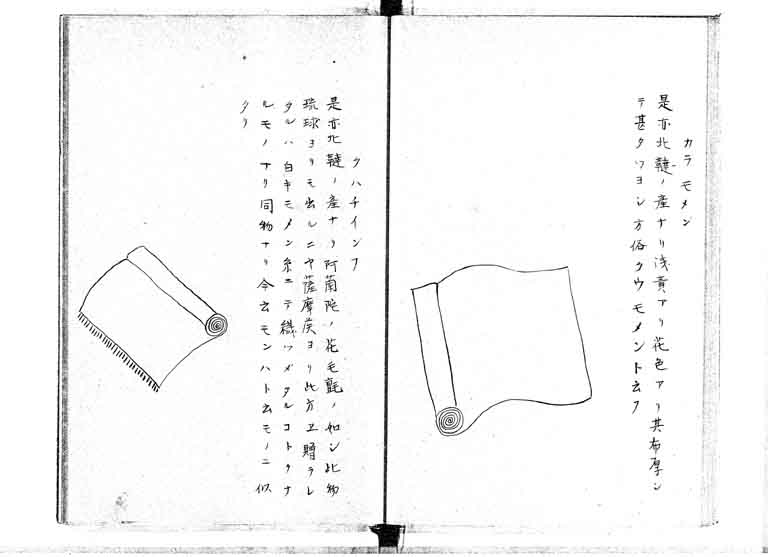 カラモメン
是亦北韃ノ産ナリ浅黄アリ花色アリ其布厚シ
テ甚タツヨシ方俗タウモメント云フ
クハチインフ
是亦北韃ノ産ナリ阿蘭陀ノ花毛氈ノ如シ此物
琉球ヨリモ出ルニヤ薩摩侯ヨリ此方ヱ贈ラレ
タルハ白キモメン糸ニテ織ツメタルコトクナ
ルモノナリ同物ナリ今云モンハト云モノニ似
タリ